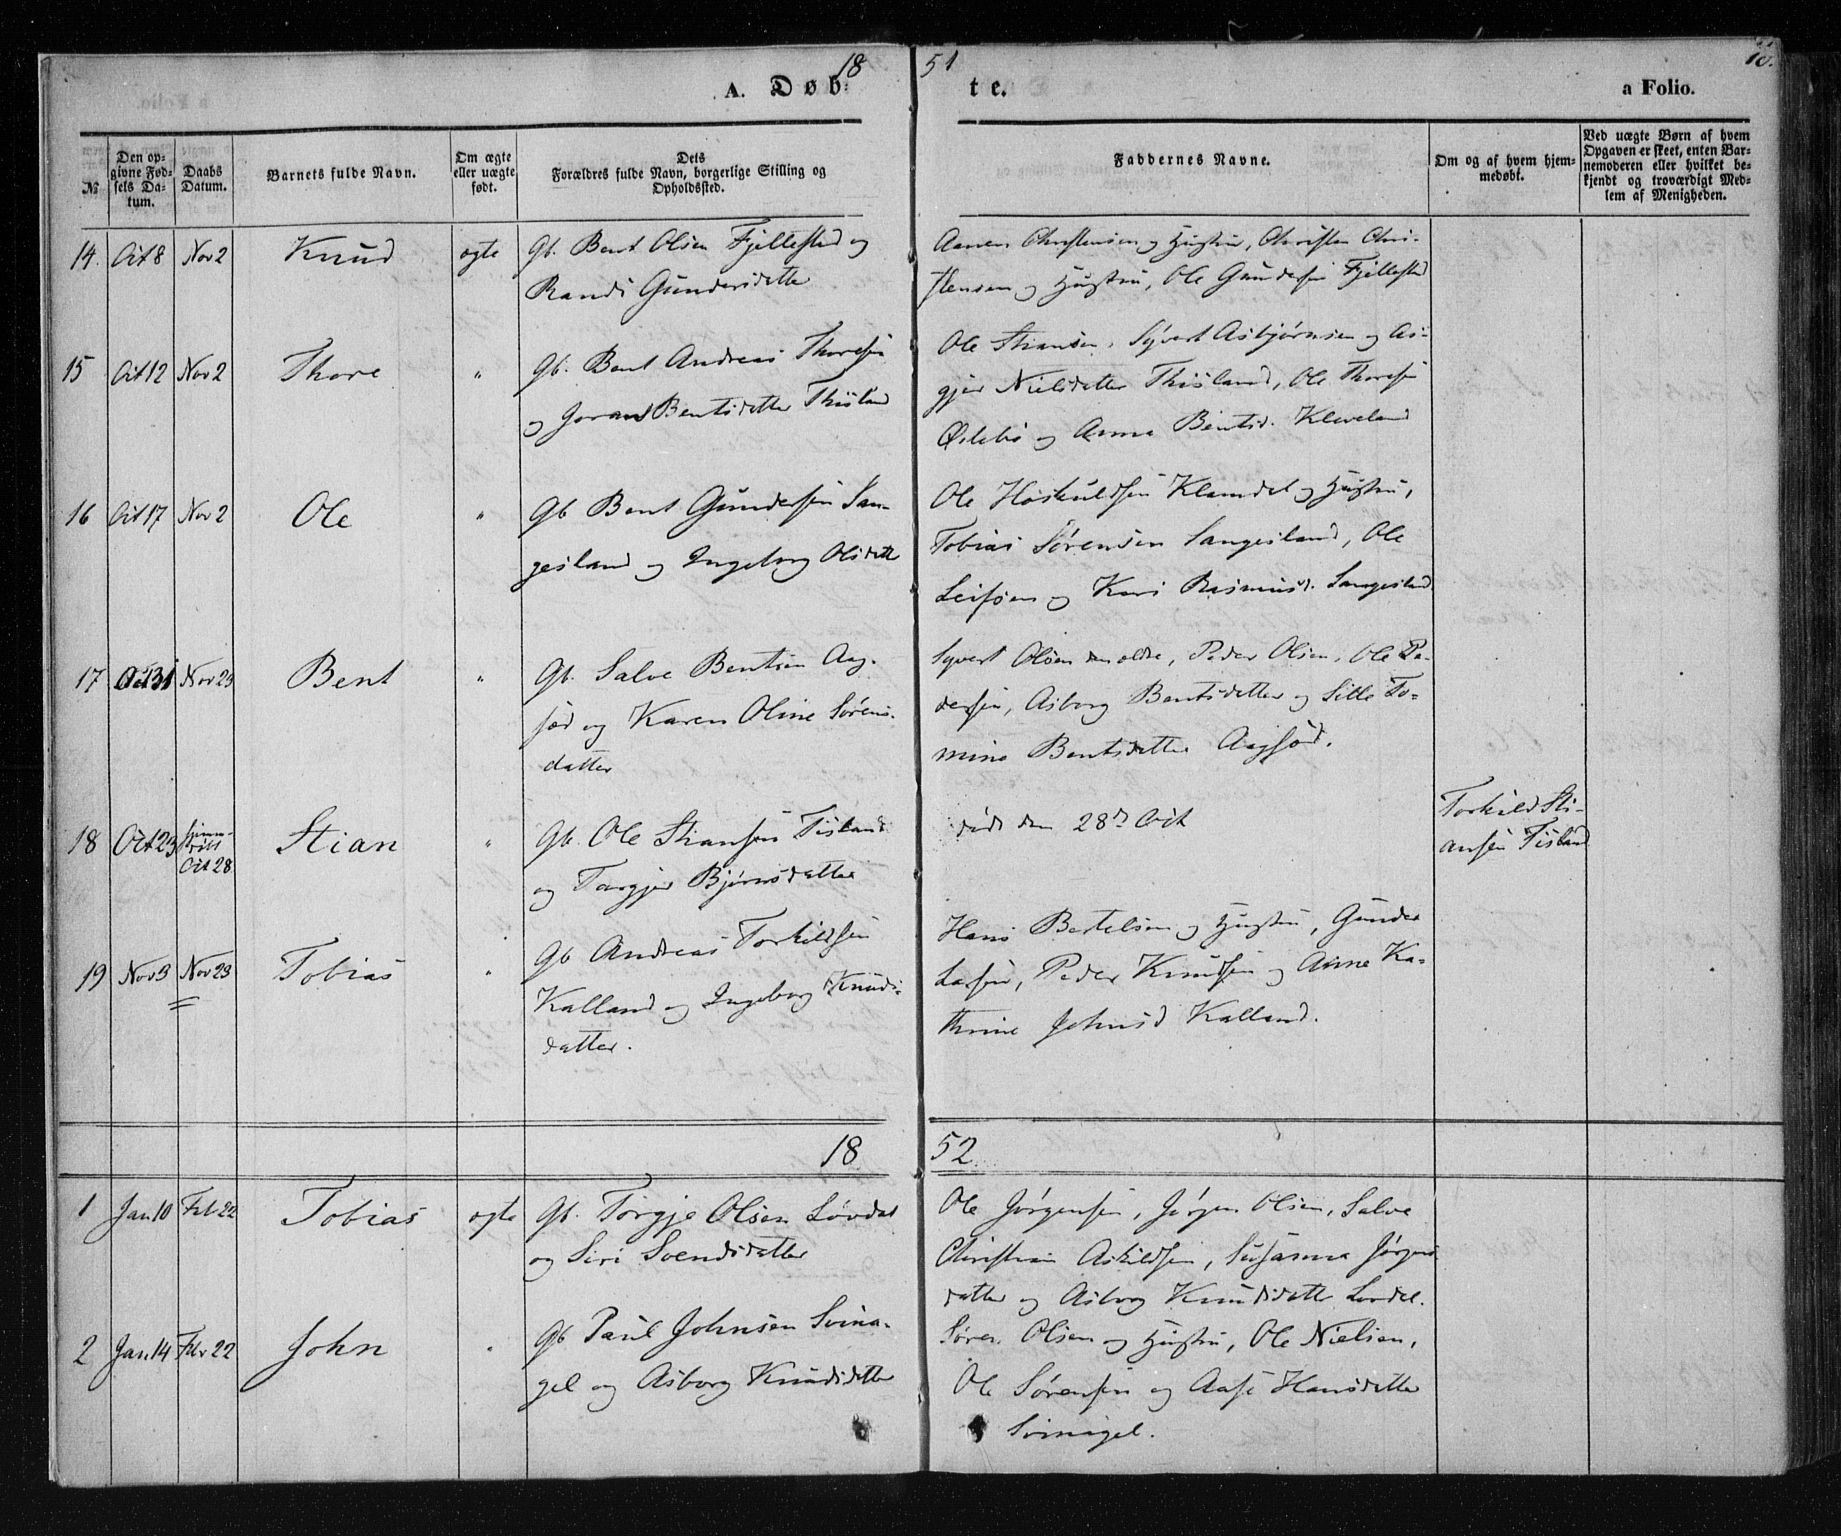 18 51 10.
A. Døb: te. a Folio.
№ Den opgivne Fødsels Datum. Daabs Datum. Barnets fulde Navn. Om ægte eller uægte født. Dets Forældres fulde Navn, borgerlige Stilling og Opholdssted. Faddernes Navne. Om og af hvem hjemmedøbt. Ved uægte Børn af hvem Opgaven er skeet, enten Barnemoderen eller hvilket bekjendt og troværdigt Medlem af Menigheden.
14. Oct 8 Nov 2 Knud ægte Gb. Bent Olsen Fjellestad og
Randi Gundersdatter
Christensen og Hustru, Christen Chri-
stensen og Hustru, Ole Gundersen Fjellestad
15 Oct 12 Nov 2 Thore " Gb. Bent Andreas Thoresen
og Joran Bentsdatter Thisland
Ole Stiansen, Syvert Asbjørnsen og As-
gjer Nielsdatter Thisland, Ole Thoresen
Øslebø og Anna Bentsd. Kleveland
16 Oct 17 Nov 2 Ole " Gb Bent Gundersen San-
gesland og Ingeborg Olsdatt
Ole Høskuldsen Klamdal og Hustru,
Tobias Sørensen Sangesland, Ole
Leifsen og Kari Rasmusd. Sangesland
17 Oct 31 Nov 23 Bent " Gb. Salve Bentsen Aag-
sød og Karen Oline Sørens-
datter
Syvert Olsen den ældre, Peder Olsen, Ole Pe-
dersen, Asborg Bentsdatter og Sille To-
mine Bentsdatter Aagsød.
18 Oct 23 hjemmedøbt Oct 28 Stian " Gb. Ole Stiansen Tisland
og Torgjer Bjørnsdatter
død den 28de Oct
Torkild Sti-
ansen Tisland
19 Nov 3 Nov 23 Tobias " Gb Andreas Torkildsen
Kalland og Ingeborg Knuds-
datter.
Hans Bertelsen og Hustru, Gunder
Larsen, Peder Knudsen og Anne Ka-
thrine Johnsd Kalland.
18 52
1 Jan 10 Feb 22 Tobias ægte Gb. Torgje Olsen Løvdal
og Siri Svendsdatter
Ole Jørgensen, Jørgen Olsen, Salve
Christian Askildsen, Susanna Jørgens
datter og Asborg Knudsdatter Løvdal.
2 Jan 14 Febr 22 John " Gb Paul Johnsen Svina-
gel og Asborg Knudsdatter
Søren Olsen og Hustru, Ole Nielsen,
Ole Sørensen og Aase Hansdatter
Svinagel.